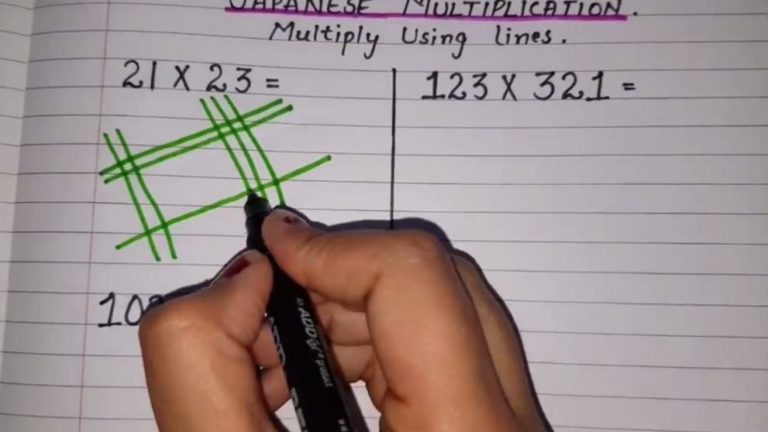 JAPANESE MULTIPLICATION.
Multiply Using lines.
21 X 23 =
123 X 321 =
ADD